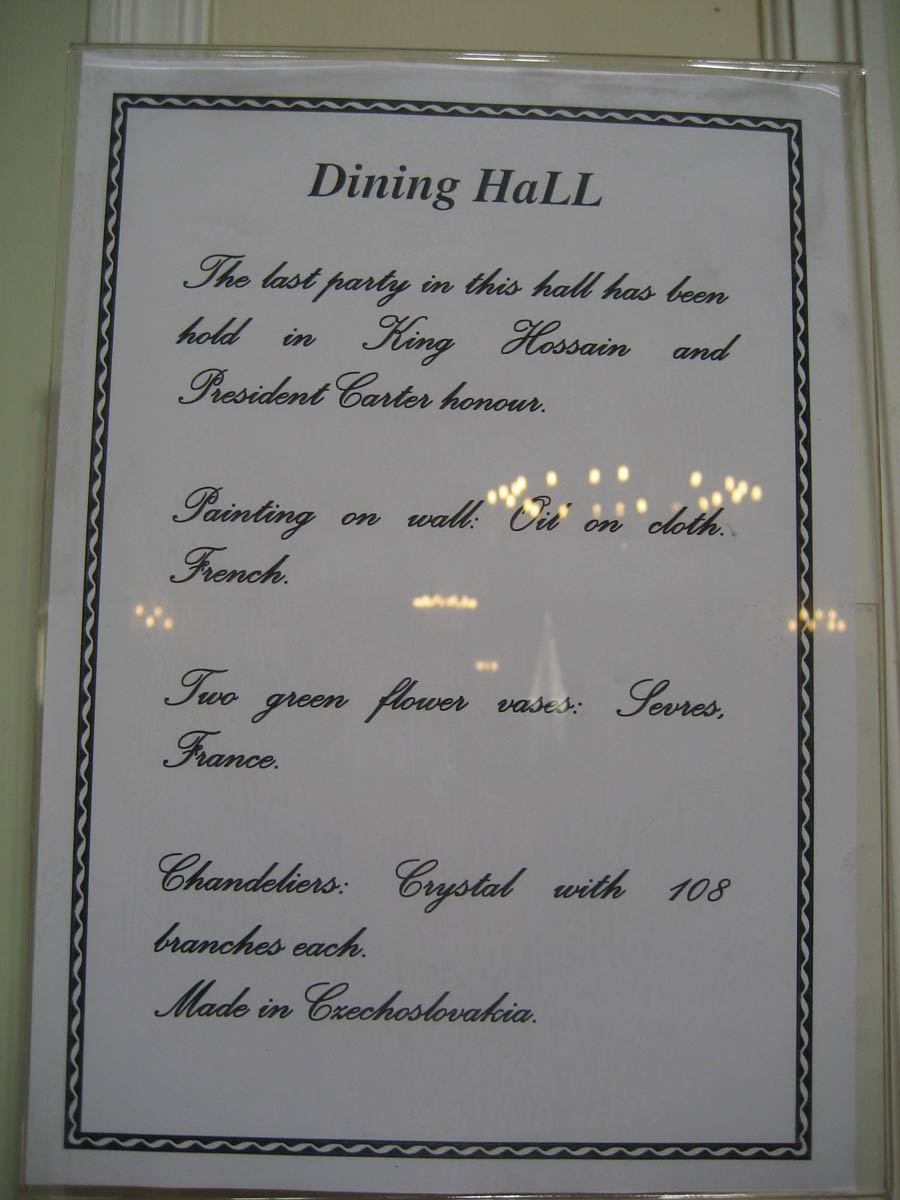 Dining HaLL
The last party in this hall has been
hold in King Hossain and
President Carter honour.
Painting on wall: Oil on cloth.
French.
Two green flower vases: Sevres,
France.
Chandeliers: Crystal with 108
branches each.
Made in Czechoslovakia.